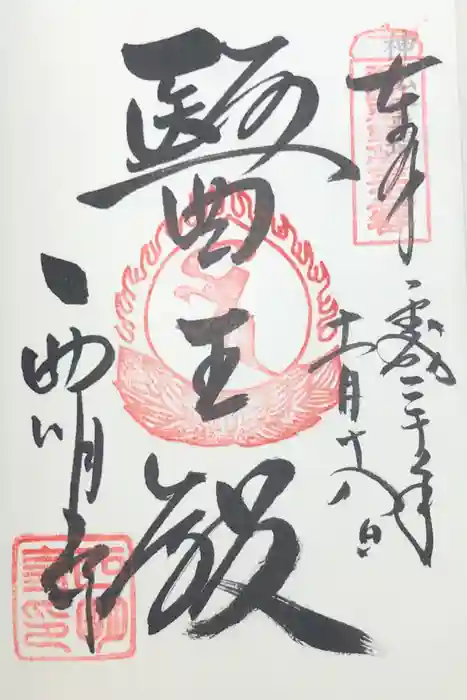 奉拝
平成三十年
十一月十八日
醫王殿
西明寺